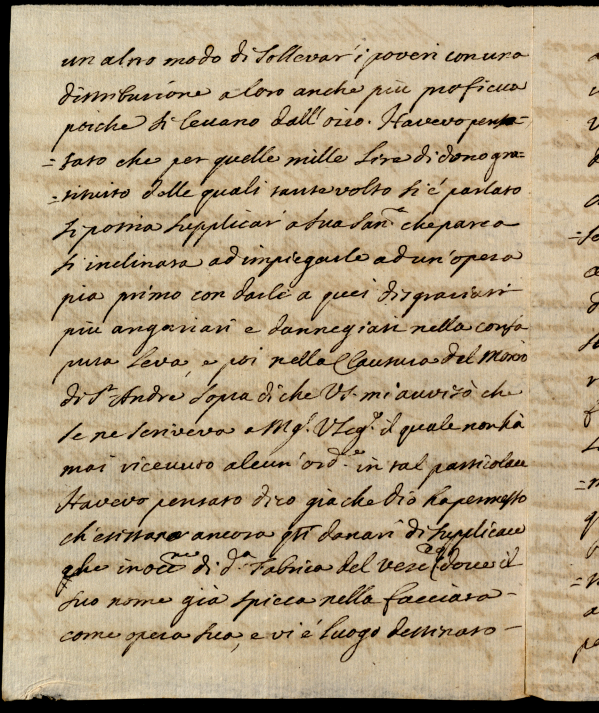 un altro modo di sollevar' i poveri con una
distributione a loro anche più proficua
perche si levano dall' otio. Havevo pensa=
=tato che per quelle mille lire di dono gra=
=tituto delle quali tante volte si é parlato
si potria supplicar' a sua San.e che parea
si inclinata ad impiegarle ad un' opera
pia primo con darle a quei disgratiati
più angariati e dannegiati nella
pura leva, e poi nella Clausura del Mon.o
di S.t Andre sopra di che VS. mi avvisò che
se ne scriveva a M.gr il quale non hà
mai ricevuto alcun' ord.e in tal particolare
Havevo pensato dico già che Dio ha permesso
ch' esistano ancora q.ti danari di supplicare
che in occ.ne di d.a Fabrica del vesc.do dove il
suo nome già spicca nella facciata -
come opera sua, e vi é luogo destinato -